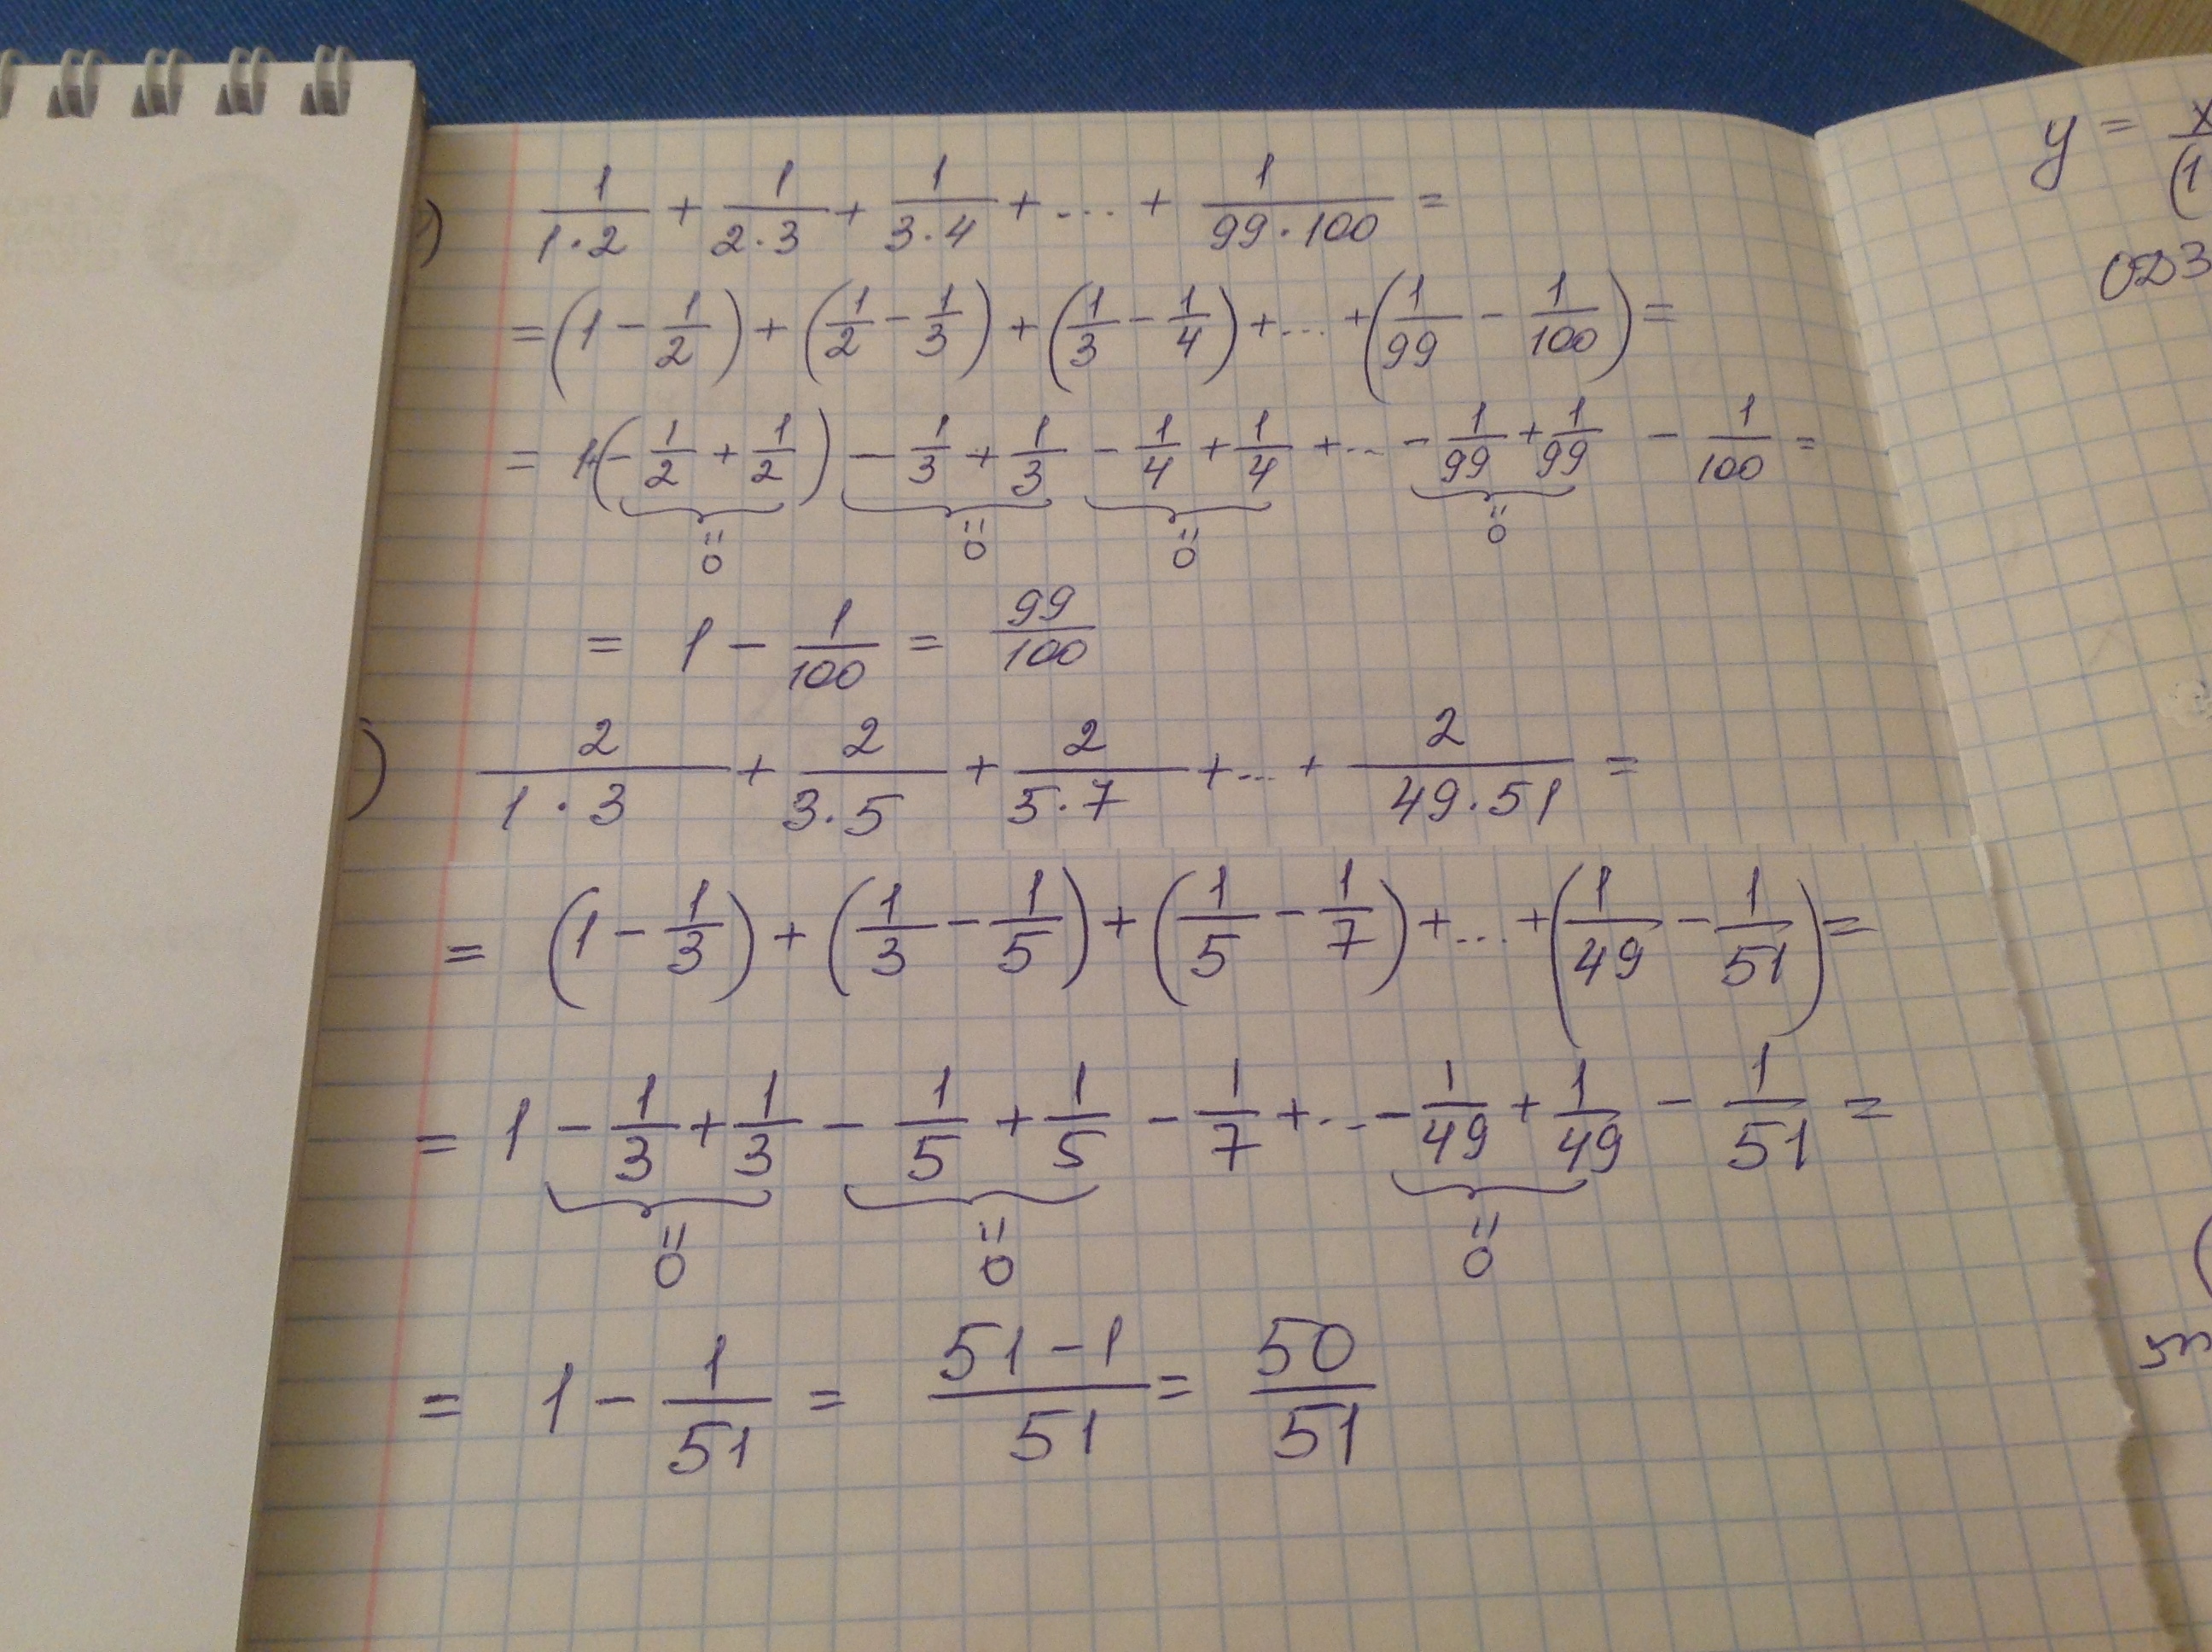 ) 1/(1·2) + 1/(2·3) + 1/(3·4) + ... + 1/(99·100) =
= (1 - 1/2) + (1/2 - 1/3) + (1/3 - 1/4) + ... + (1/99 - 1/100) =
= 1+(- 1/2 + 1/2) - 1/3 + 1/3 - 1/4 + 1/4 + ... - 1/99 + 1/99 - 1/100 =
= 0 = 0 = 0 = 0
= 1 - 1/100 = 99/100
) 2/(1·3) + 2/(3·5) + 2/(5·7) + ... + 2/(49·51) =
= (1 - 1/3) + (1/3 - 1/5) + (1/5 - 1/7) + ... + (1/49 - 1/51) =
= 1 - 1/3 + 1/3 - 1/5 + 1/5 - 1/7 + ... - 1/49 + 1/49 - 1/51 =
= 0 = 0 = 0
= 1 - 1/51 = (51-1)/51 = 50/51
y = x/(1
ОДЗ